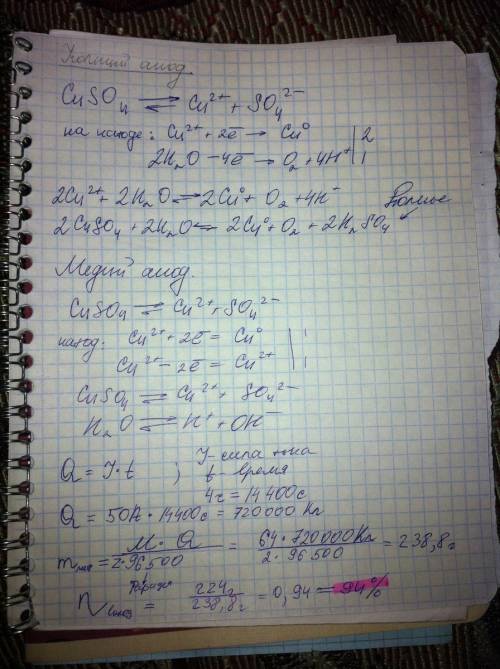 анод.
CuSO₄ ⇄ Cu²⁺ + SO₄²⁻
на катоде: Cu²⁺ + 2ē → Cu⁰ | 2
2H₂O − 4ē → O₂ + 4H⁺ | 1
2Cu²⁺ + 2H₂O ⇄ 2Cu⁰ + O₂ + 4H⁻
2CuSO₄ + 2H₂O ← 2Cu⁰ + O₂ + 2H₂SO₄
Медный анод.
CuSO₄ ⇄ Cu²⁺ + SO₄²⁻
катод: Cu²⁺ + 2ē = Cu⁰ | 1
Cu²⁺ − 2ē = Cu²⁺ | 1
CuSO₄ ⇄ Cu²⁺ + SO₄²⁻
H₂O ⇄ H⁺ + OH⁻
Q = I·t ; I - сила тока
t - время
4ч = 14400с
Q = 50А · 14400с = 720000 Кл
m = M · Q / 2 · 96500 = 64 · 720000Кл / 2 · 96500 = 238,8г
η = 224г / 238,8г = 0,94 = 94%